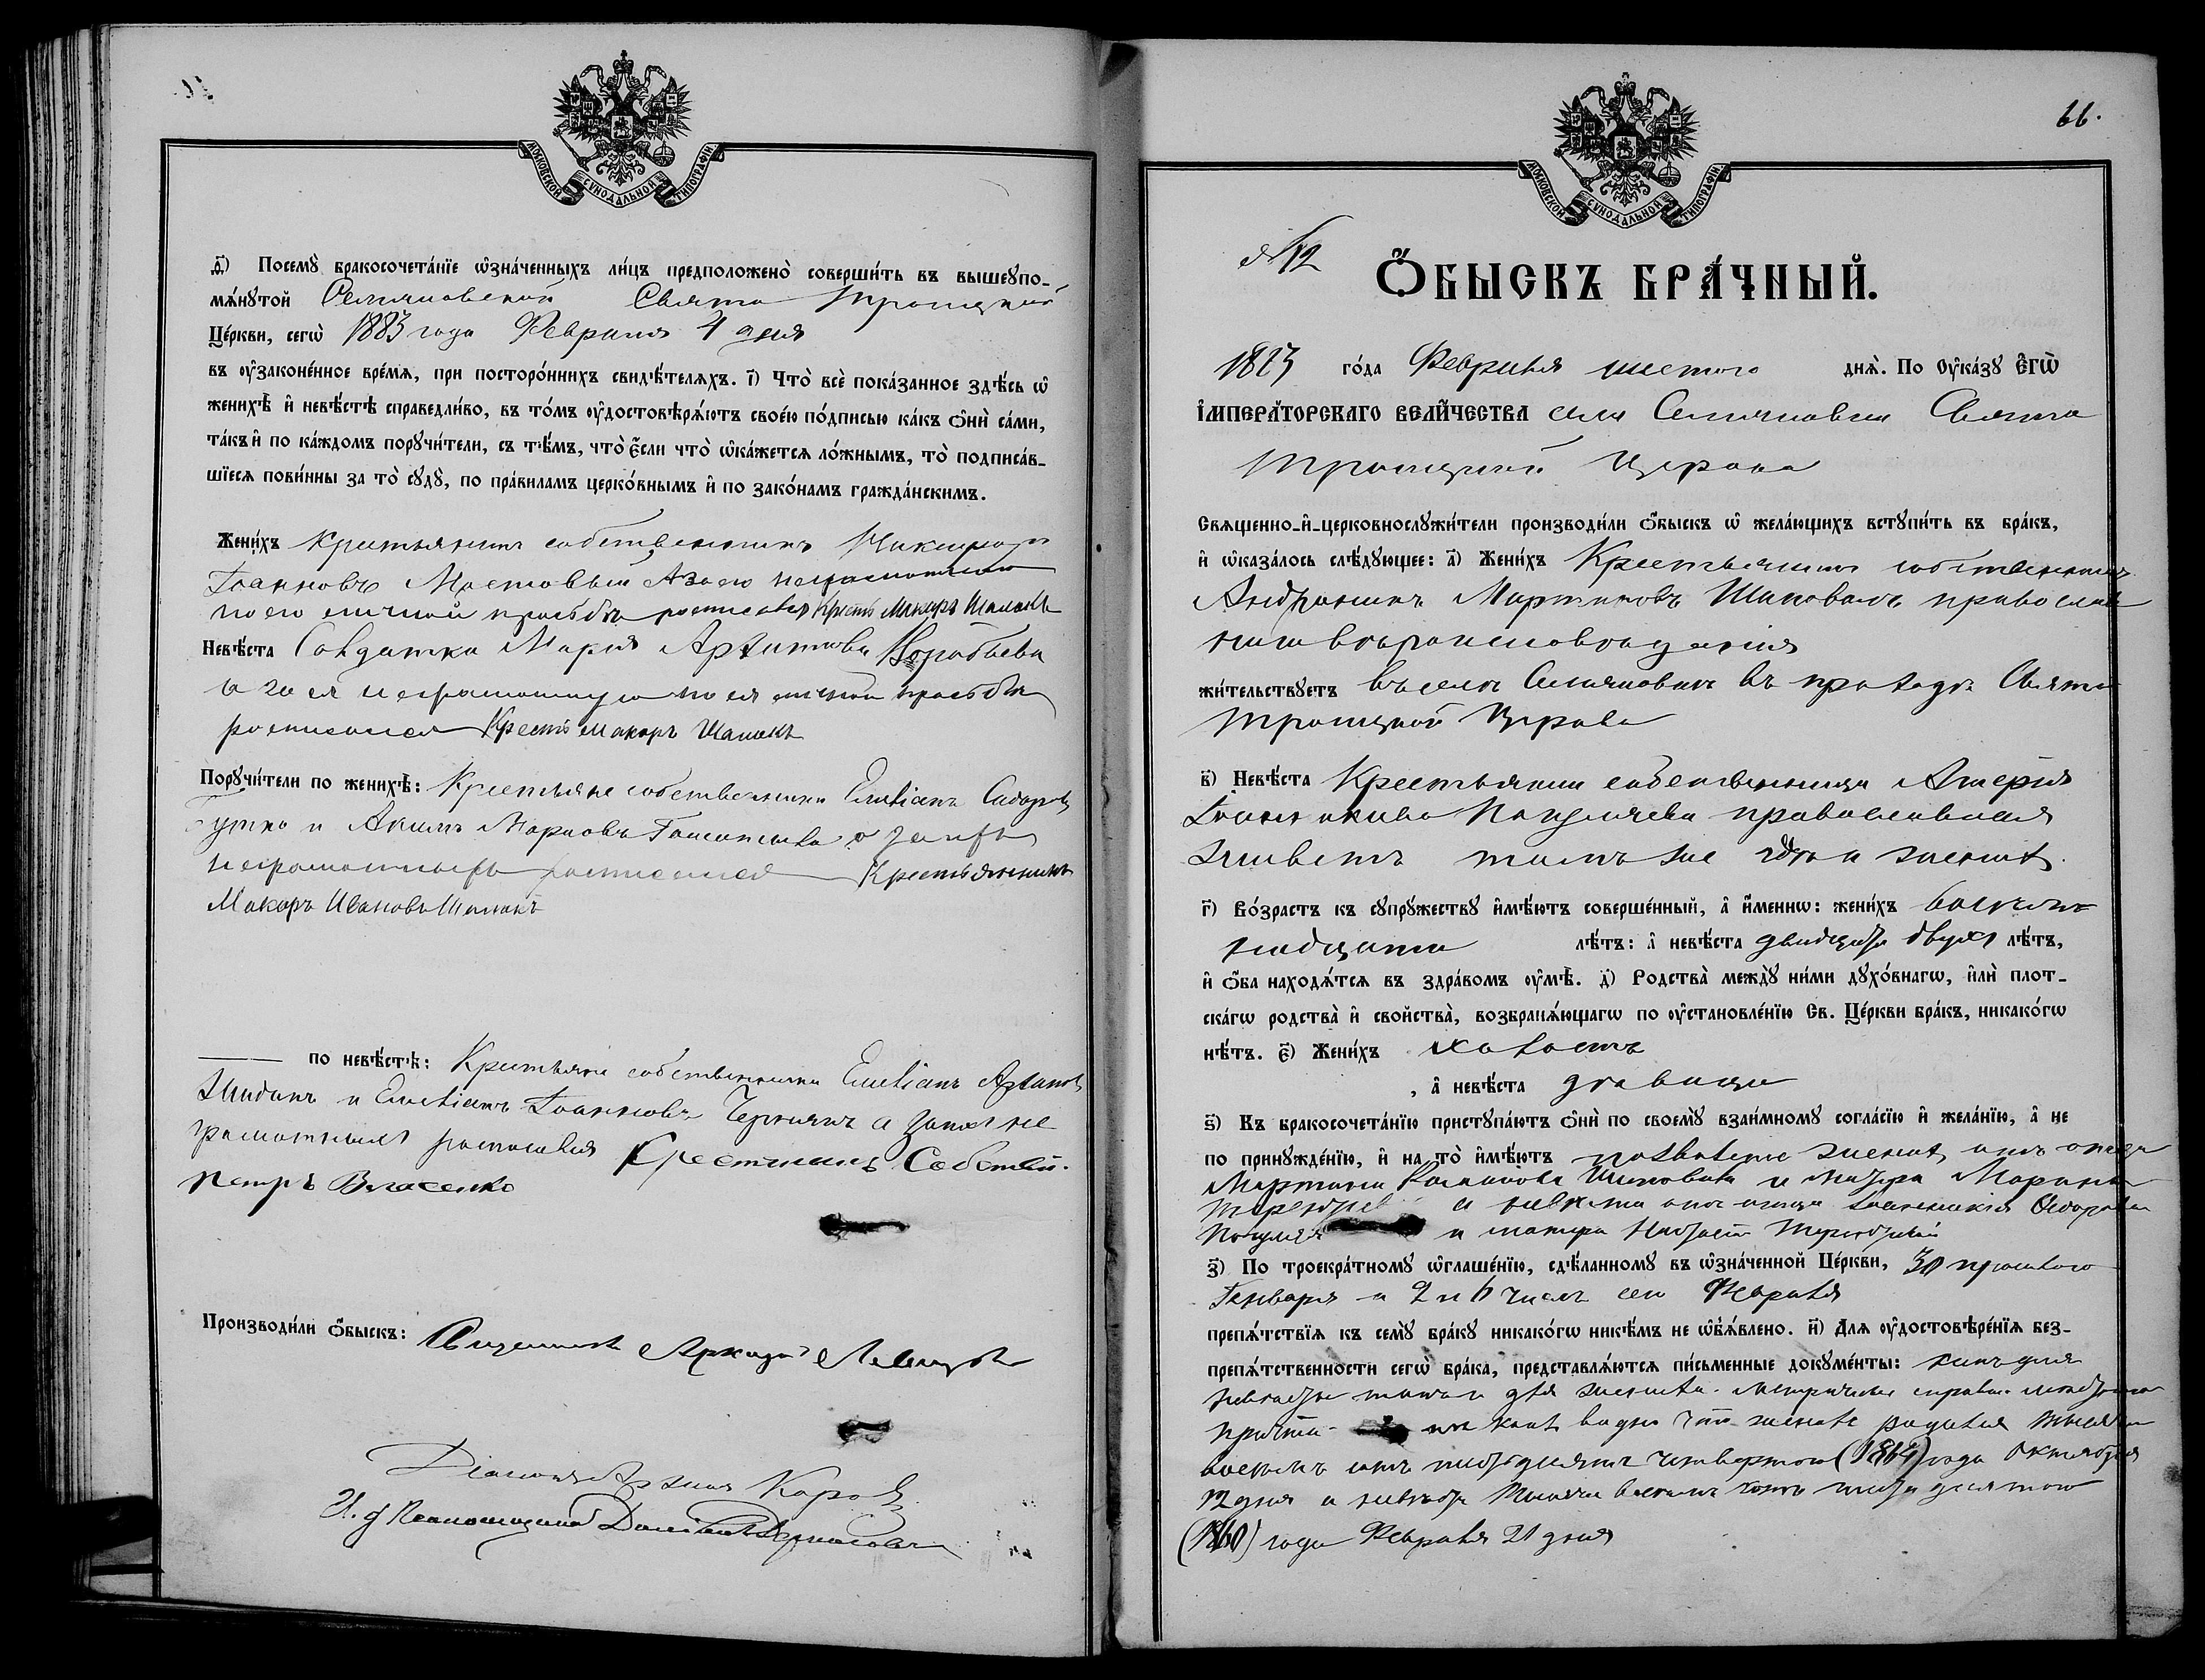 МОСКОВСКОЙ СУНОДАЛЬНОЙ ТИПОГРАФІИ
д҃) Посемꙋ̀ бракосочета́нїе ѡ҆зна́ченныхъ ли́цъ предположено̀ соверши́ть въ вышеꙋпо-
мѧ́нꙋтой Семяновской Свято Троицкой
Це́ркви, сегѡ̀ 1883 года Февраля 4 дня
въ ᲂу҆законе́нное вре́мѧ, при посторо́ннихъ свидѣ́телѧхъ. і҃) Что̀ всѐ пока́занное здѣ́сь ѡ҆
женихѣ̀ и҆ невѣ́стѣ справедли́во, въ то́мъ ᲂу҆достовѣрѧ́ютъ свое́ю по́дписью ка́къ ѻ҆нѝ са́ми,
та́къ и҆ по ка́ждомъ порꙋчи́тели, съ тѣ́мъ, что̀ є҆́сли что̀ ѡ҆ка́жется ло́жнымъ, то̀ подписа́в-
шїеся пови́нны за то̀ сꙋдꙋ̀, по пра́виламъ церко́внымъ и҆ по зако́намъ гражда́нскимъ.
Жени́хъ крестьянинъ собственникъ
Іоанновъ Мостовый А за его неграмотного
по его личной просьбѣ росписался Крест. Макаръ Шапакъ
Невѣ́ста Солдатка Марія Архипова Воробьева
а за ея неграмотную по ея личной просьбѣ
росписался Крестъ Макаръ Шапакъ
Порꙋчи́тели по женихѣ̀: Крестьяне собственники Емеліанъ Сидоровъ
и Акимъ Марковъ а за ихъ
неграмотныхъ росписался Крестьянинъ
Макаръ Ивановъ Шапакъ
по невѣ́стѣ: Крестьяне собственники Емеліанъ Архиповъ
и Емеліанъ Іоанновъ Чернякъ а за ихъ не
грамотныхъ росписался Крестьянинъ Собствен.
Петръ Власенко
Производи́ли ѻ҆́быскъ: Священникъ Аркадій
Діаконъ
И. д. Псаломщика
66.
МОСКОВСКОЙ СУНОДАЛЬНОЙ ТИПОГРАФІИ
№ 12
Ѻ҆́БЫСКЪ БРА́ЧНЫЙ.
1883 го́да Февраля шестого днѧ̀. По Оу҆ка́зꙋ Є҆гѡ̀
І҆мпера́торскаго Вели́чества села Семяновки Свято
Троицкой Церкви
Свѧщенно-и҆-церковнослꙋжи́тели производи́ли ѻ҆́быскъ ѡ҆ жела́ющихъ встꙋпи́ть въ бра́къ,
и҆ ѡ҆каза́лось слѣ́дꙋющее: а҃) Жени́хъ Крестьянинъ собственникъ
Мартиновъ Шаповалъ православ
наго вѣроисповѣданія
жи́тельствꙋетъ въ селѣ Семяновкѣ въ приходѣ Свято
Троицкой Церкви
в҃) Невѣ́ста Крестьянка собственница
православная
живетъ тамъ же гдѣ и женихъ.
г҃) Во́зрастъ къ сꙋпрꙋ́жествꙋ и҆мѣ́ютъ соверше́нный, а҆ и҆́менно: жени́хъ восем-
надцати лѣ́тъ: а҆ невѣ́ста двадцати двухъ лѣ́тъ,
и҆ ѻ҆́ба нахо́дѧтся въ здра́вомъ ᲂу҆мѣ̀. д҃) Родства̀ междꙋ̀ ни́ми дꙋхо́внагѡ, и҆лѝ плот-
ска́гѡ родства̀ и҆ свойства̀, возбранѧ́ющагѡ по ᲂу҆становле́нїю Св. Це́ркви бра́къ, никако́гѡ
нѣ́тъ. є҃) Жени́хъ холостъ
, а҆ невѣ́ста дѣвица
ѕ҃) Къ бракосочета́нїю пристꙋпа́ютъ ѻ҆нѝ по своемꙋ̀ взаи́мномꙋ согла́сїю и҆ жела́нїю, а҆ не
по принꙋжде́нїю, и҆ на то̀ и҆мѣ́ютъ позволеніе женихъ отъ отца
Мартина Шаповала и матери
а невѣста отъ отца
и матери
з҃) По троекра́тномꙋ ѡ҆глаше́нїю, сдѣ́ланномꙋ въ ѡ҆зна́ченной Це́ркви, 30 прошлого
Генваря и 2 и 6 числъ сего Февраля
препѧ́тствїѧ къ семꙋ̀ бра́кꙋ никако́гѡ никѣ́мъ не ѡ҆б̾ѧ́влено. и҃) Для ᲂу҆достовѣре́нїѧ без-
препѧ́тственности сегѡ̀ бра́ка, представлѧ́ются пи́сьменные докꙋме́нты: какъ для
невѣсты такъ и для жениха метрическ. справк. мѣстного
причта видно что женихъ родился тысяча
восемъ сотъ шестьдесятъ четвертого (1864) года Октября
12 дня а невѣста тысяча восемъ сотъ шестьдесятого
(1860) года Февраля 21 дня